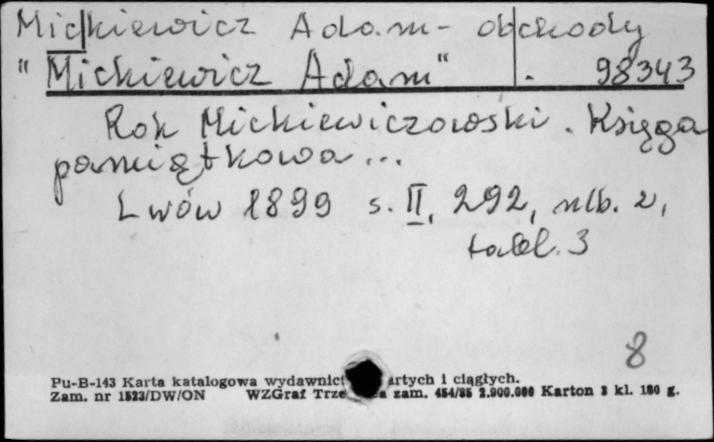 Mickiewicz Adam - obchody
"Mickiewicz Adam". 98343
Rok Mickiewiczowski. Księga
pamiątkowa...
Lwów 1899 s. II, 292, nlb. 2,
tabl. 3
8
Pu-B-143 Karta katalogowa wydawnict artych i ciągłych.
Zam. nr 1523/DW/ON WZGraf Trze a zam. 454/85 2.900.000 Karton 3 kl. 180 g.